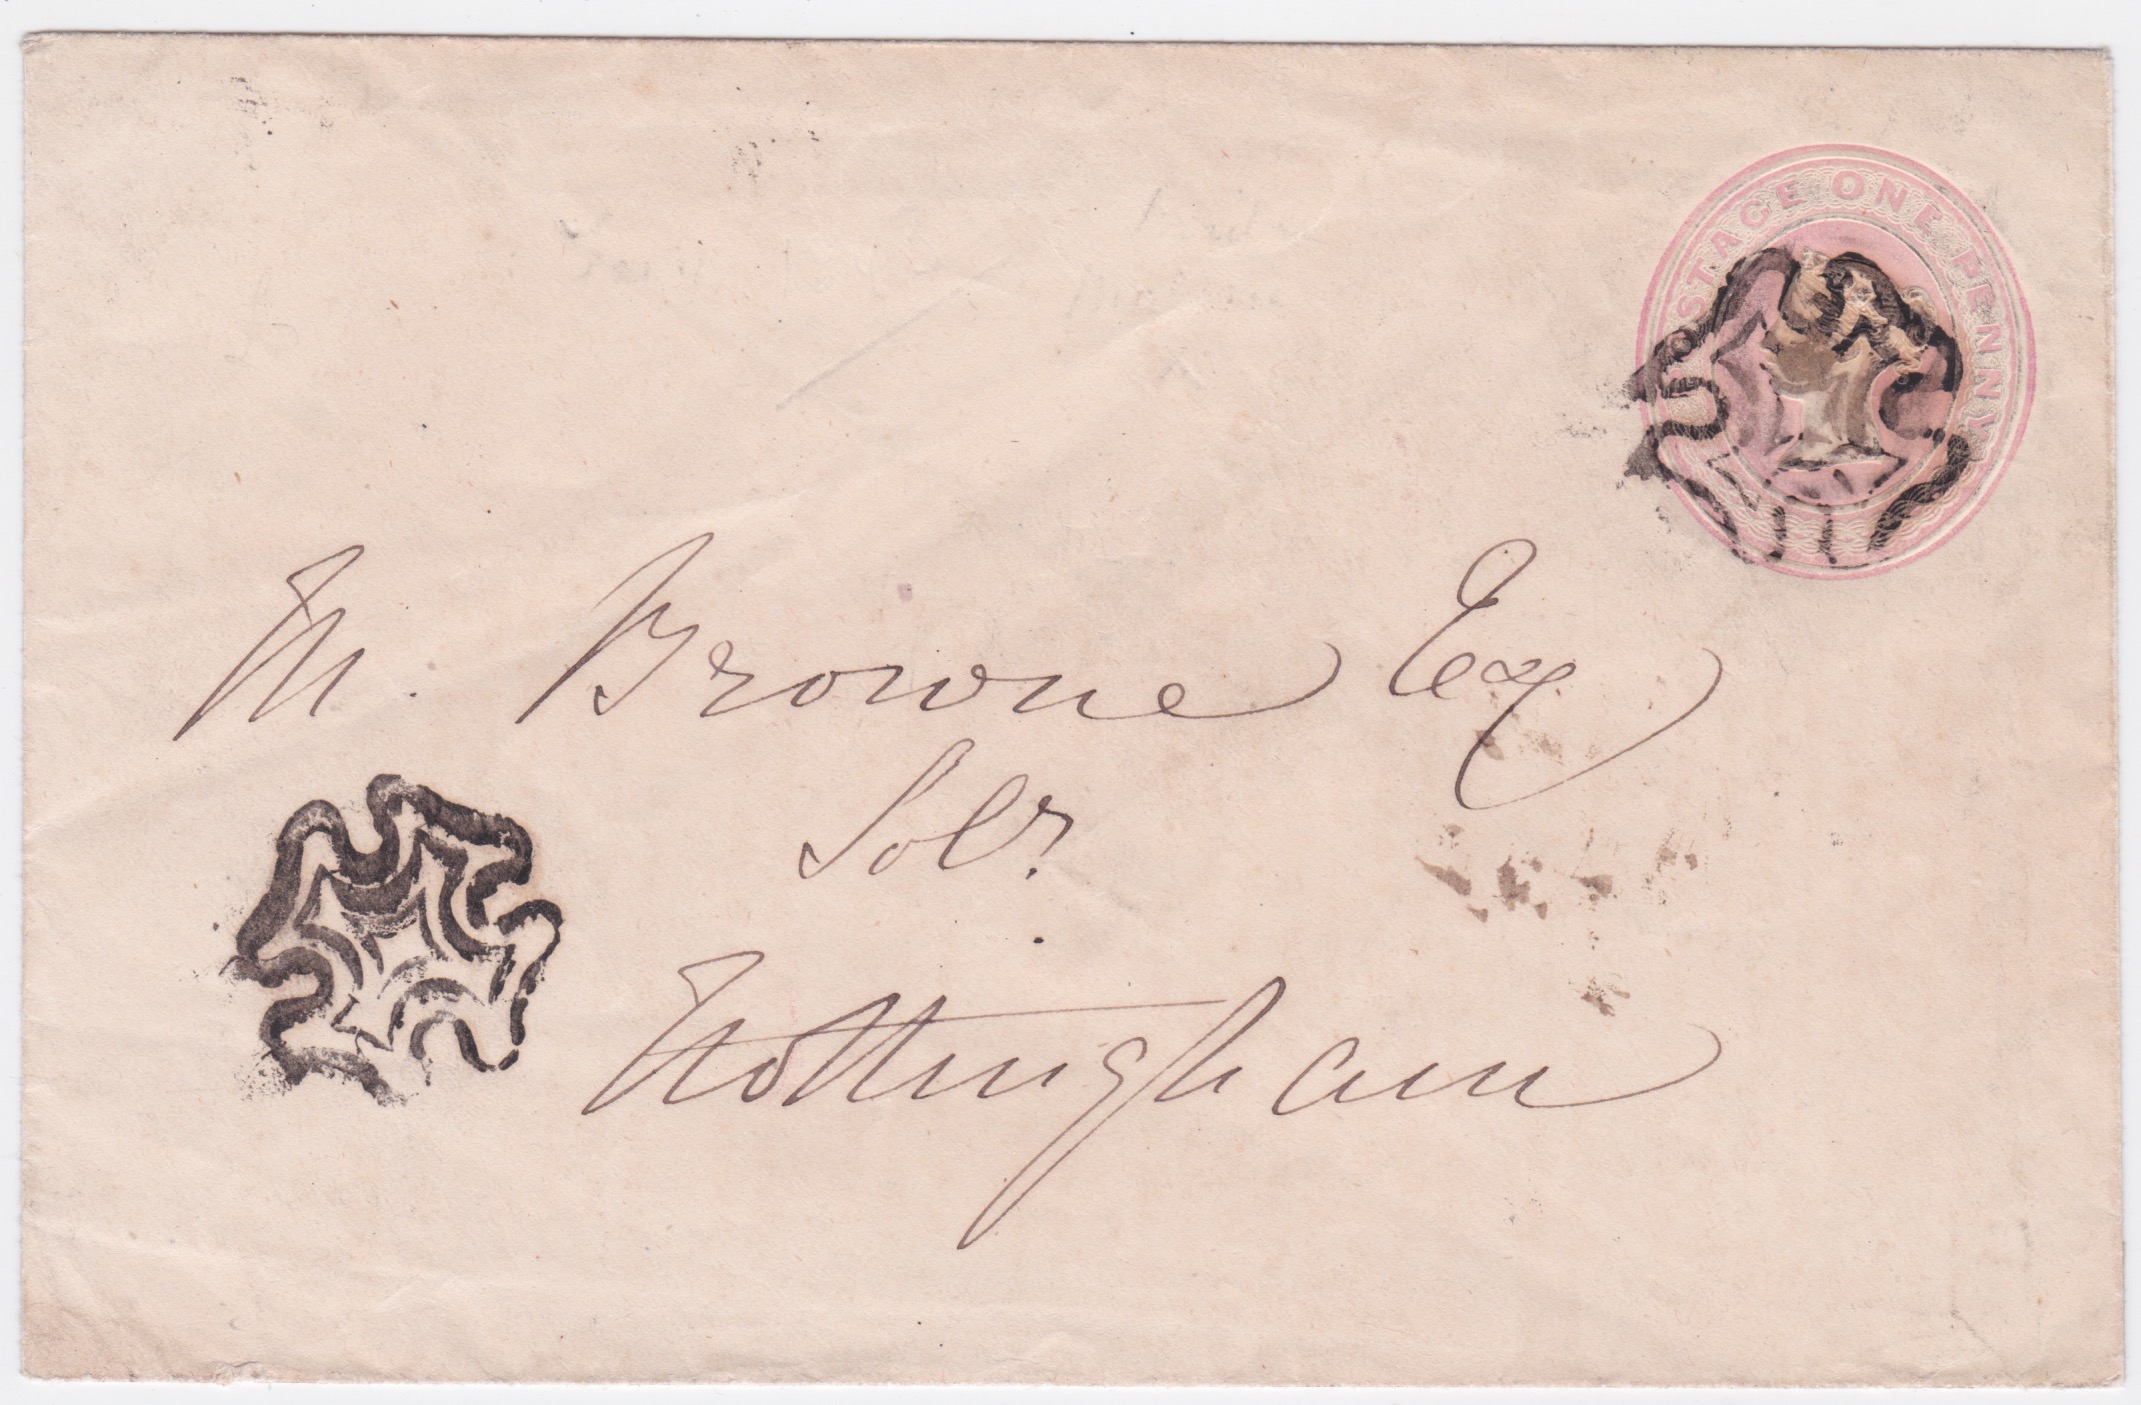 POSTAGE ONE PENNY
M. Browne Esq
Solr.
Nottingham